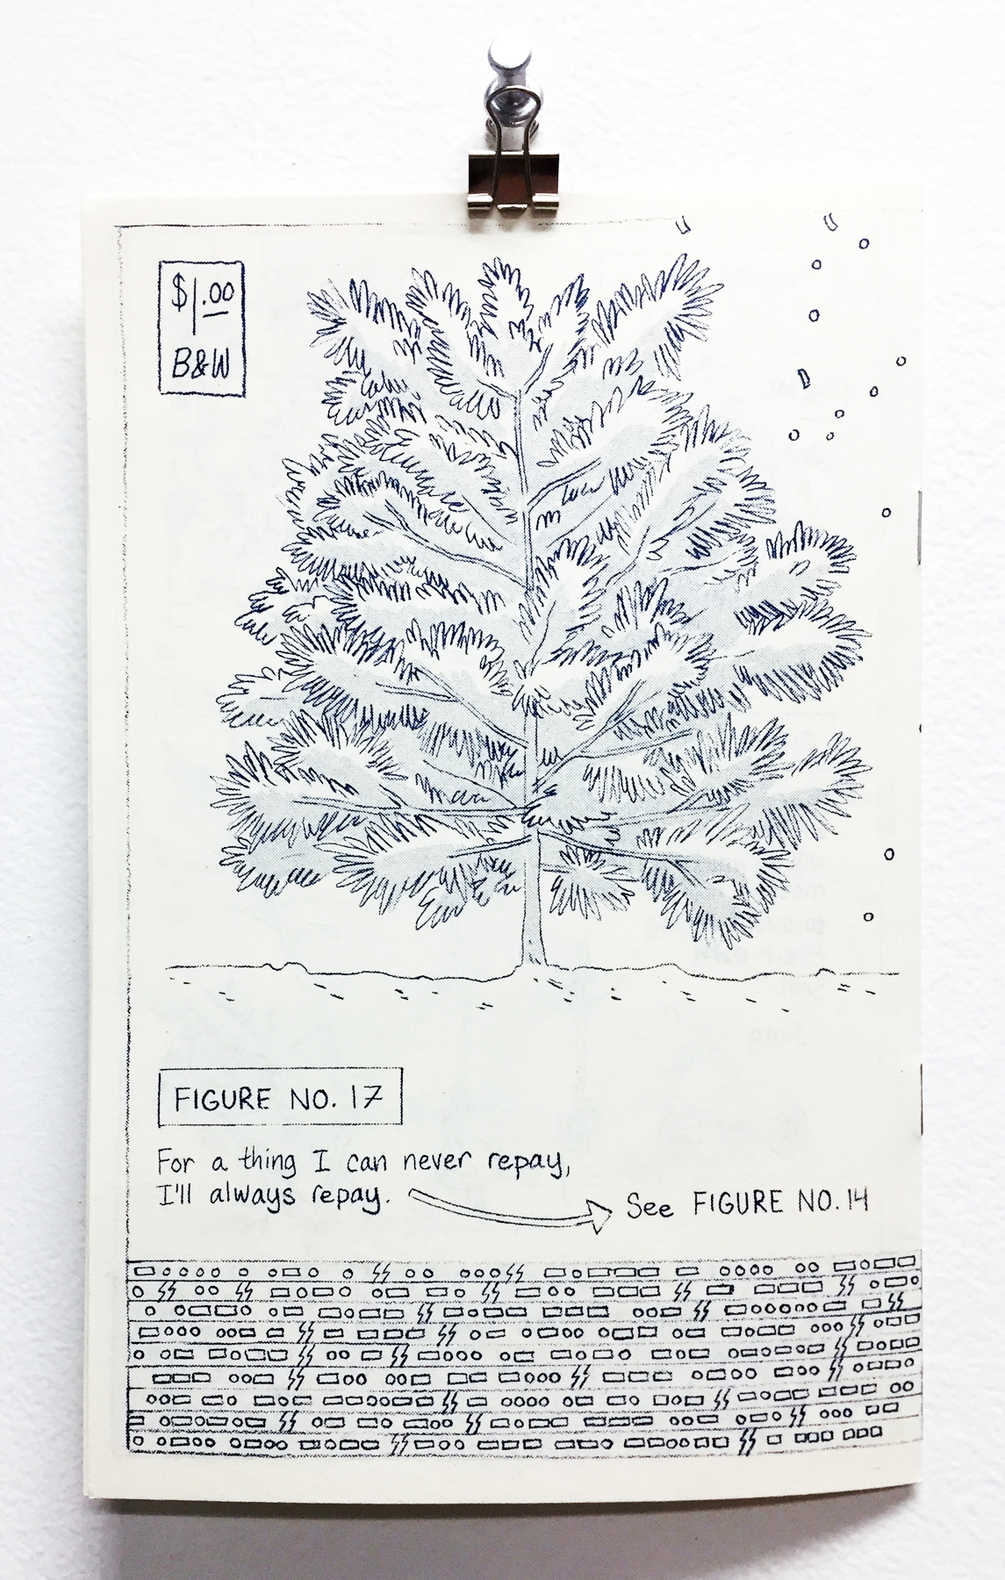 $1.00
B&W
FIGURE NO. 17
For a thing I can never repay,
I'll always repay. See FIGURE NO. 14